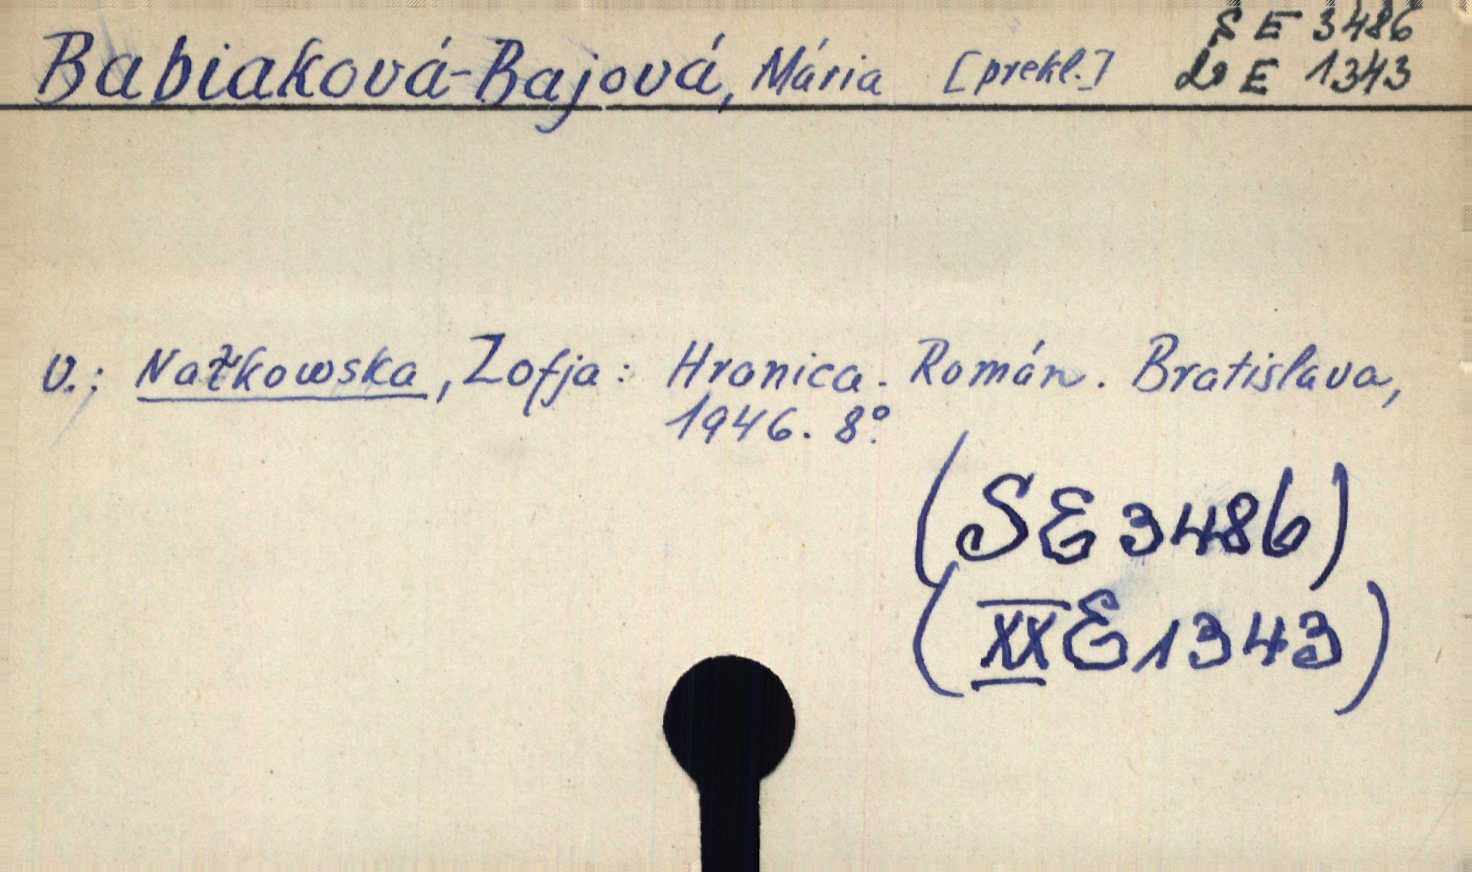 Babiaková-Bajová, Mária [prekl.] SE 3486
E 1343
v.: Nałkowska, Zofja: Hranica. Román. Bratislava,
1946. 8°.
(SE 3486)
(XX E 1343)